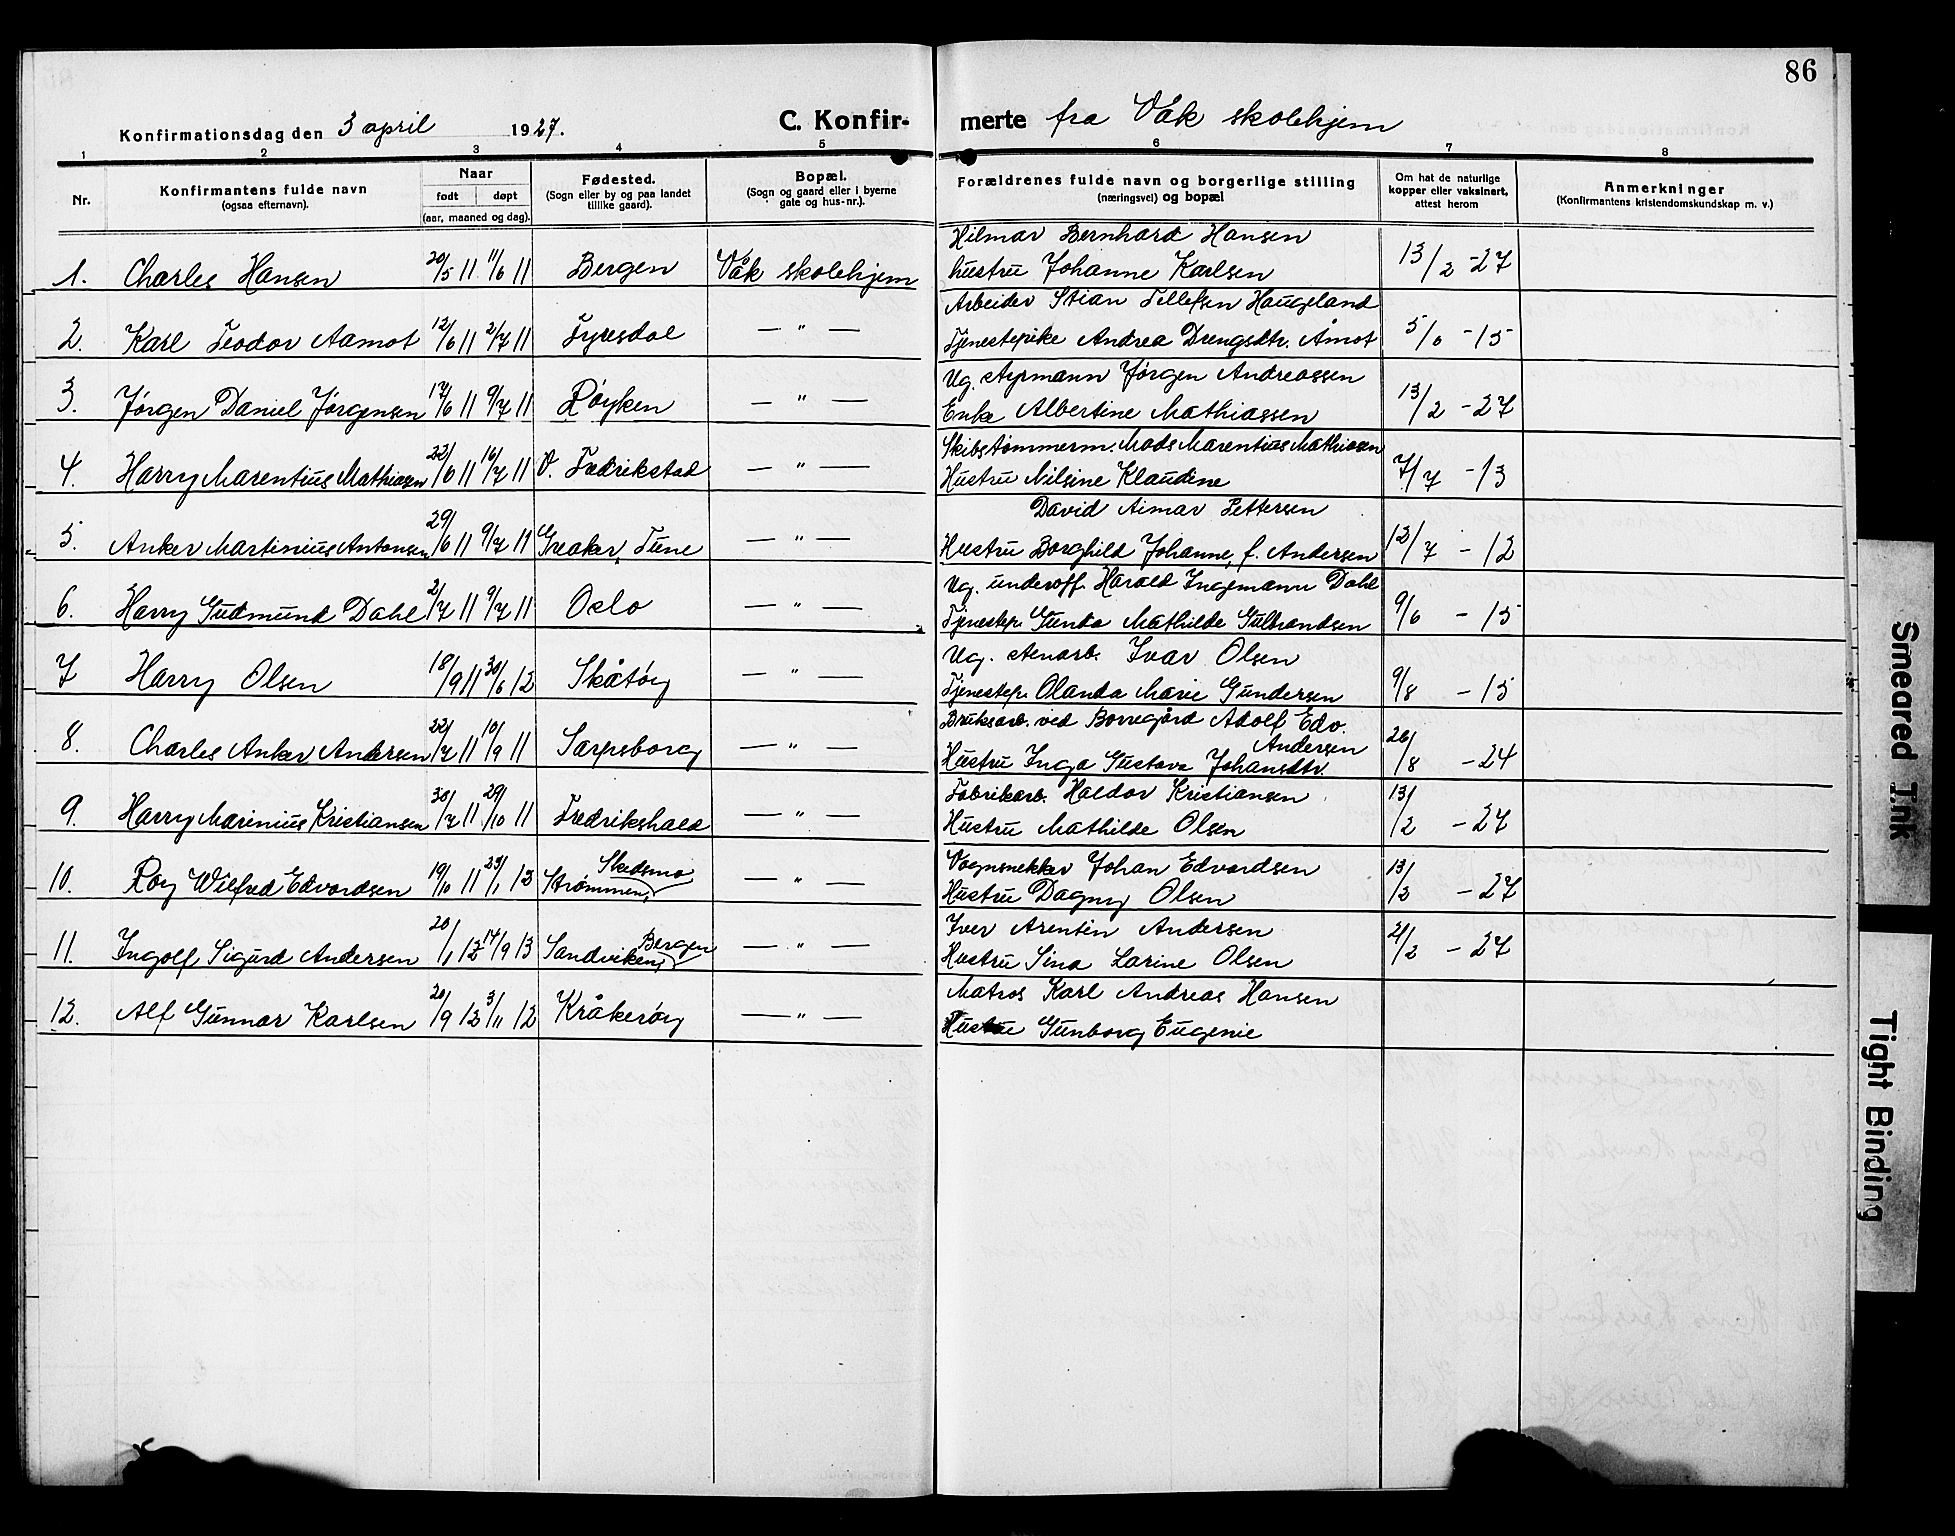 86
Konfirmationsdag den 3 april 1927. C. Konfirmerte fra Våk skolehjem
1 2 3 4 5 6 7 8
Nr. Konfirmantens fulde navn (ogsaa efternavn). Naar født døpt (aar, maaned og dag). Fødested. (Sogn eller by og paa landet tillike gaard). Bopæl. (Sogn og gaard eller i byerne gate og hus-nr.). Forældrenes fulde navn og borgerlige stilling (næringsvei) og bopæl Om hat de naturlige kopper eller vaksinert, attest herom Anmerkninger (Konfirmantens kristendomskundskap m. v.)
Hilmar Bernhard Hansen
1. Charles Hansen 20/5 11 11/6 11 Bergen Våk skolehjem hustru Johanne Karlsen 13/2 -27
Arbeider Stian Tellefsen Haugeland
2. Karl Teodor Aamot 12/6 11 2/7 11 Fyresdal — " — Tjenestepike Andrea Drengsdtr. Åmot 5/6 -15
Ug. Jørgen Andreassen
3. Jørgen Daniel Jørgensen 17/6 11 9/7 11 Røyken — " — Enke Albertine Mathiassen 13/2 -27
Skibstømmerm. Mads Marentius Mathiasen
4. Harry Marentius Mathiasen 22/6 11 16/7 11 V. Fredrikstad — " — Hustru Nilsine Klaudine 7/7 -13
David Aimar Pettersen
5. Anker Martinius Antonsen 29/6 11 9/7 11 Greaker, Tune — " — Hustru Borghild Johanne, f. Andersen 12/7 - 12
Ug. underoff. Harald Ingemann Dahl
6. Harry Gudmund Dahl 2/7 11 9/7 11 Oslo — " — Tjenestep. Gunda Mathilde Gulbrandsen 9/6 - 15
Ug. Ivar Olsen
7 Harry Olsen 18/9 11 30/6 12 Skåtøy — " — Tjenestep. Olanda Marie Gundersen 9/8 - 15
Bruksarb. ved Borregård Adolf Edv. Andersen
8. Charles Anker Andersen 22/7 11 10/9 11 Sarpsborg — " — Hustru Inga Gustava Johansdtr. 26/8 -24
Fabrikarb. Haldor Kristiansen
9. Harry Marinius Kristiansen 30/7 11 29/10 11 Fredrikshald — " — Hustru Mathilde Olsen 13/2 -27
Vognsnekker Johan Edvardsen
10. Roy Wilfred Edvardsen 19/10 11 29/1 12 Strømmen, Skedsmo — " — Hustru Dagny Olsen 13/2 -27
Iver Arentin Andersen
11. Ingolf Sigurd Andersen 20/1 12 14/9 13 Sandviken, Bergen — " — Hustru Sina Larine Olsen 21/2 -27
Matros Karl Andreas Hansen
12. Alf Gunnar Karlsen 20/9 12 3/11 12 Kråkerøy — " — Hustru Gunborg Eugenie
Smeared Ink
Tight Binding